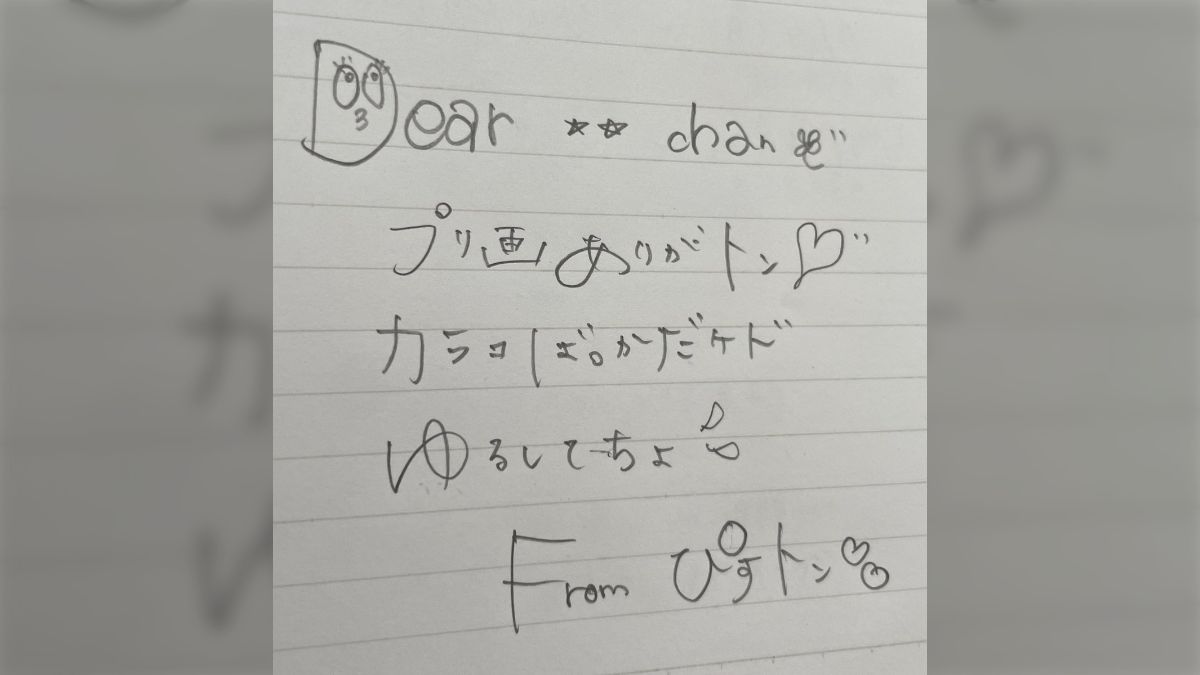 Dear ★★ chan
プリ画ありがトン♡
カラコばっかだケド
ゆるしてちょ
From ぴすトン♡